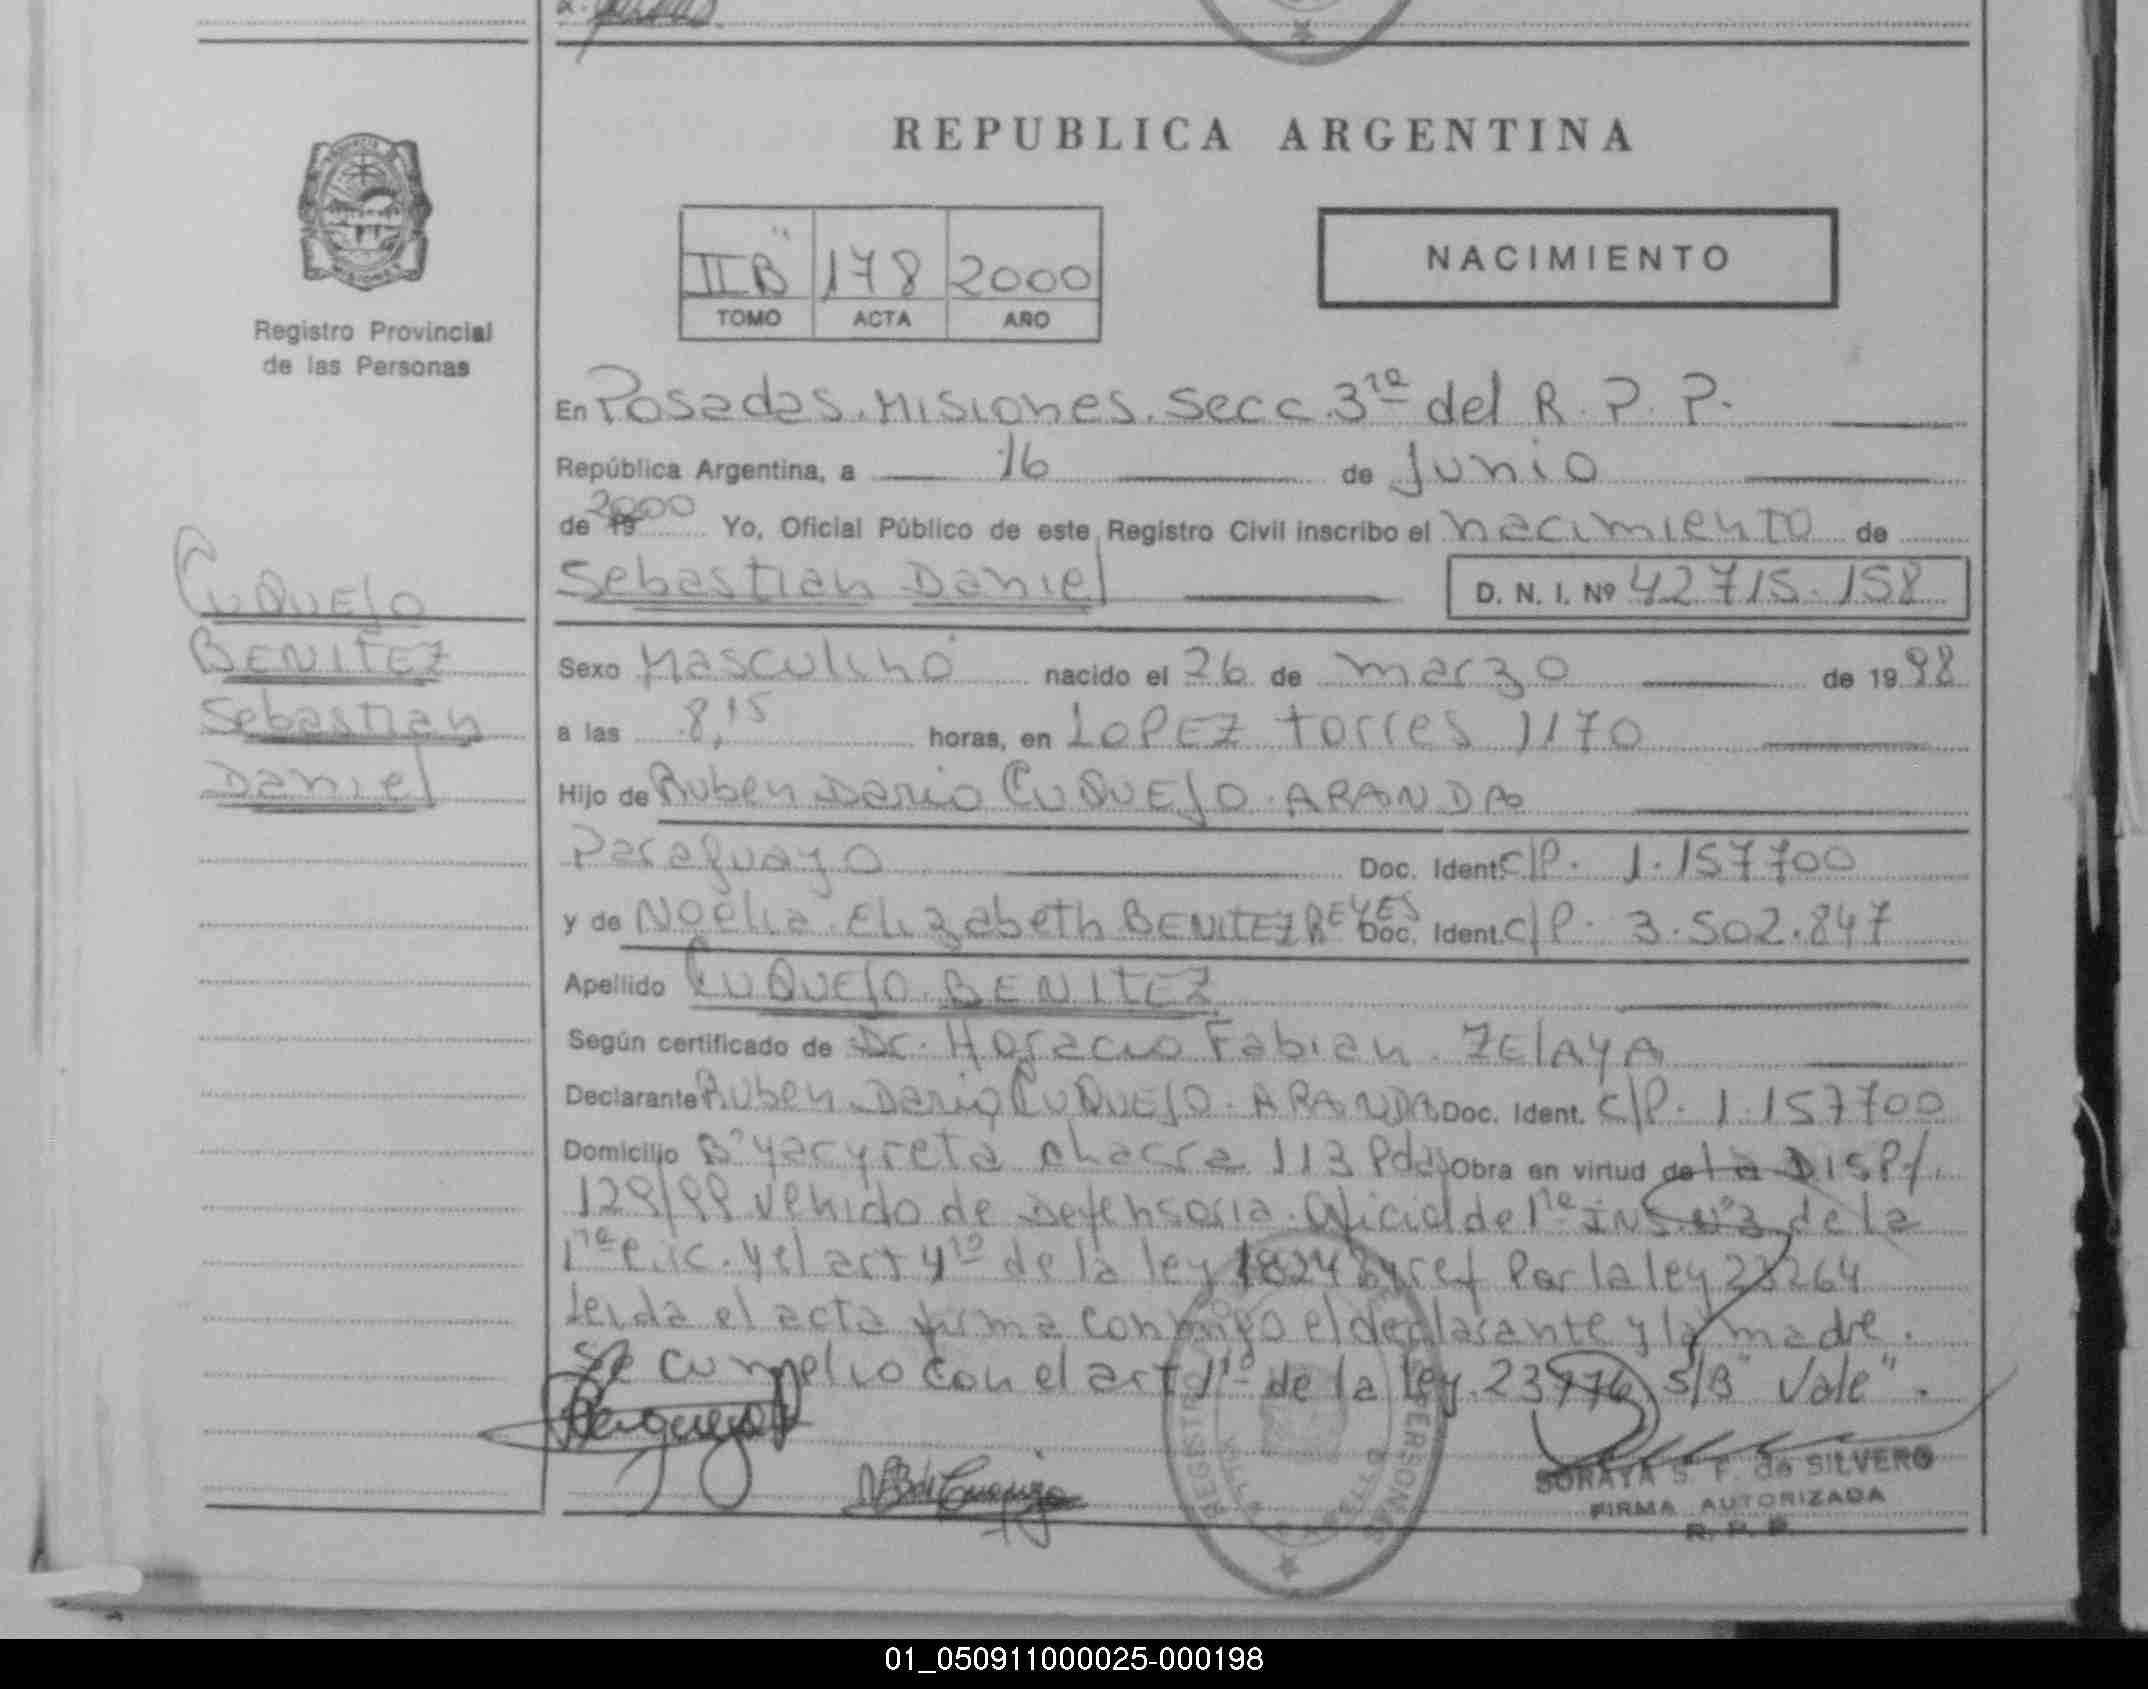 REPUBLICA ARGENTINA
II "B" 178 2000
TOMO ACTA AÑO
NACIMIENTO
Registro Provincial
de las Personas
En Posadas. Misiones. Secc. 3ra del R. P. P.
República Argentina, a 16 de Junio
de 19 2000 Yo, Oficial Público de este Registro Civil inscribo el nacimiento de
Sebastian Daniel D. N. I. Nº 42715.158
CUQUEJO
BENITEZ
Sebastian
Daniel
Sexo Masculino nacido el 26 de marzo de 1998
a las 8,15 horas, en LOPEZ torres 1170
Hijo de Ruben Dario CUQUEJO. ARANDA
Paraguayo Doc. Ident. C/P. 1.157700
y de Noelia. Elizabeth BENITEZ REYES Doc. Ident. C/P. 3.502.847
Apellido CUQUEJO. BENITEZ
Según certificado de Dr. Horacio Fabian. ZELAYA
Declarante Ruben Dario CUQUEJO. ARANDA Doc. Ident. C/P. 1.157700
Domicilio Bº yacyreta chacra 113 Pdas Obra en virtud de la DISP/.
129/99 venido de Defensoria. Oficial de 1ra INS. Nº3 de la
1ra C.ic. y el art 4to de la ley 18248 y ref Por la ley 23264
Leida el acta firma conmigo el declarante y la madre.
Se cumplio con el art 11º de la ley. 23776 S/B "Vale".
SORAYA S. F. de SILVERO
FIRMA AUTORIZADA
R. P. P.
01_050911000025-000198